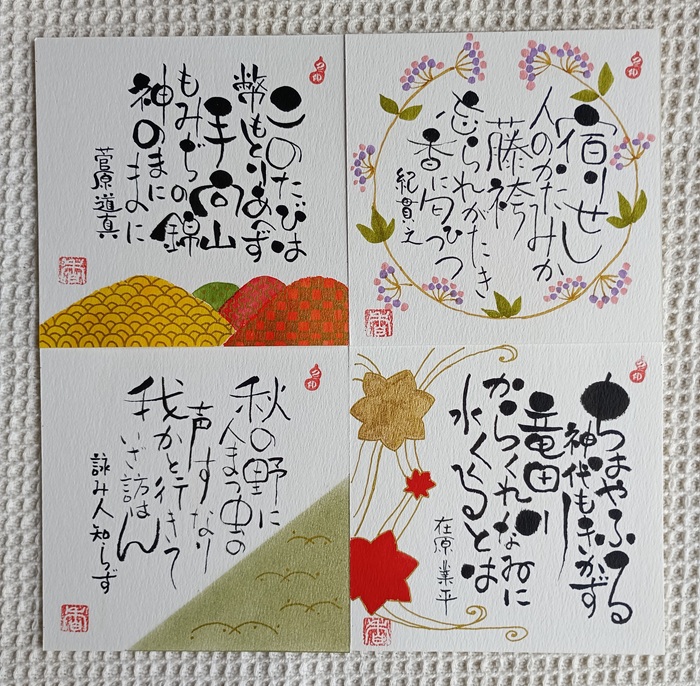 このたびは
幣もとりあへず
手向山
もみぢの錦
神のまにまに
菅原道真
宿りせし
人のかたみか
藤袴
忘られがたき
香に匂ひつつ
紀貫之
秋の野に
人まつ虫の
声すなり
我かと行きて
いざ訪はん
詠み人知らず
ちはやふる
神代もきかず
竜田川
からくれなゐに
水くくるとは
在原業平